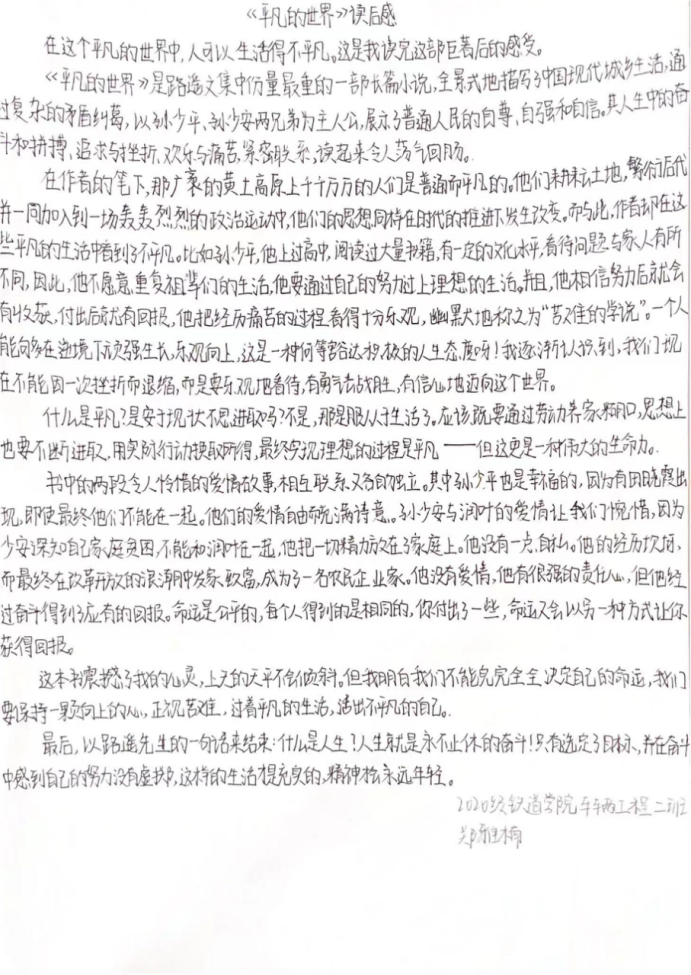 《平凡的世界》读后感
在这个平凡的世界中,人可以生活得不平凡。这是我读完这部巨著后的感受。
《平凡的世界》是路遥文集中份量最重的一部长篇小说,全景式地描写了中国现代城乡生活,通
过复杂的矛盾纠葛,以孙少平、孙少安两兄弟为主人公,展示了普通人民的自尊、自强和自信。其人生中的奋
斗和拼搏、追求与挫折、欢乐与痛苦,紧密联系,读起来令人荡气回肠。
在作者的笔下,那广袤的黄土高原上千千万万的人们是普通而平凡的。他们耕耘土地,繁衍后代
并一同加入到一场轰轰烈烈的政治运动中,他们的思想同样在时代的推进下发生改变。而与此,作者却在这
些平凡的生活中看到了不平凡。比如孙少平,他上过高中,阅读过大量书籍,有一定的文化水平,看待问题与家人有所
不同,因此,他不愿意重复祖辈们的生活,他要通过自己的努力过上理想的生活。并且,他相信努力后就会
有收获,付出后就有回报,他把经历痛苦的过程看得十分乐观,幽默地称之为“苦难的学说”。一个人
能够在逆境下顽强生长,乐观向上,这是一种何等豁达积极的人生态度呀!我逐渐认识到,我们现
在不能因一次挫折而退缩,而是要乐观地看待,有勇气去战胜,有信心地迈向这个世界。
什么是平凡?是安于现状不思进取吗?不是,那是服从于生活了。应该既要通过劳动养家糊口,思想上
也要不断进取,用实际行动换取所得,最终实现理想的过程是平凡——但这更是一种伟大的生命力。
书中的两段令人怜惜的爱情故事,相互联系又各自独立。其中孙少平也是幸福的,因为有田晓霞出
现,即使最终他们不能在一起。他们的爱情自由而充满诗意。孙少安与润叶的爱情让我们惋惜,因为
少安深知自己家庭贫困,不能和润叶在一起,他把一切精力放在了家庭上。他没有一点自私。他的经历坎坷,
而最终在改革开放的浪潮中发家致富,成为了一名农民企业家。他没有爱情,他有很强的责任心,但他经
过奋斗得到了应有的回报。命运是公平的,每个人得到的是相同的,你付出了一些,命运又会以另一种方式让你
获得回报。
这本书震撼了我的心灵,上天的天平不会倾斜。但我明白我们不能完完全全决定自己的命运,我们
要保持一颗向上的心,正视苦难,过着平凡的生活,活出不平凡的自己。
最后,以路遥先生的一句话来结束:什么是人生?人生就是永不止休的奋斗!只有选定了目标,并在奋斗
中感到自己的努力没有虚掷,这样的生活才是充实的,精神也会永远年轻。
2020级铁道学院车辆工程二班
郑雅楠